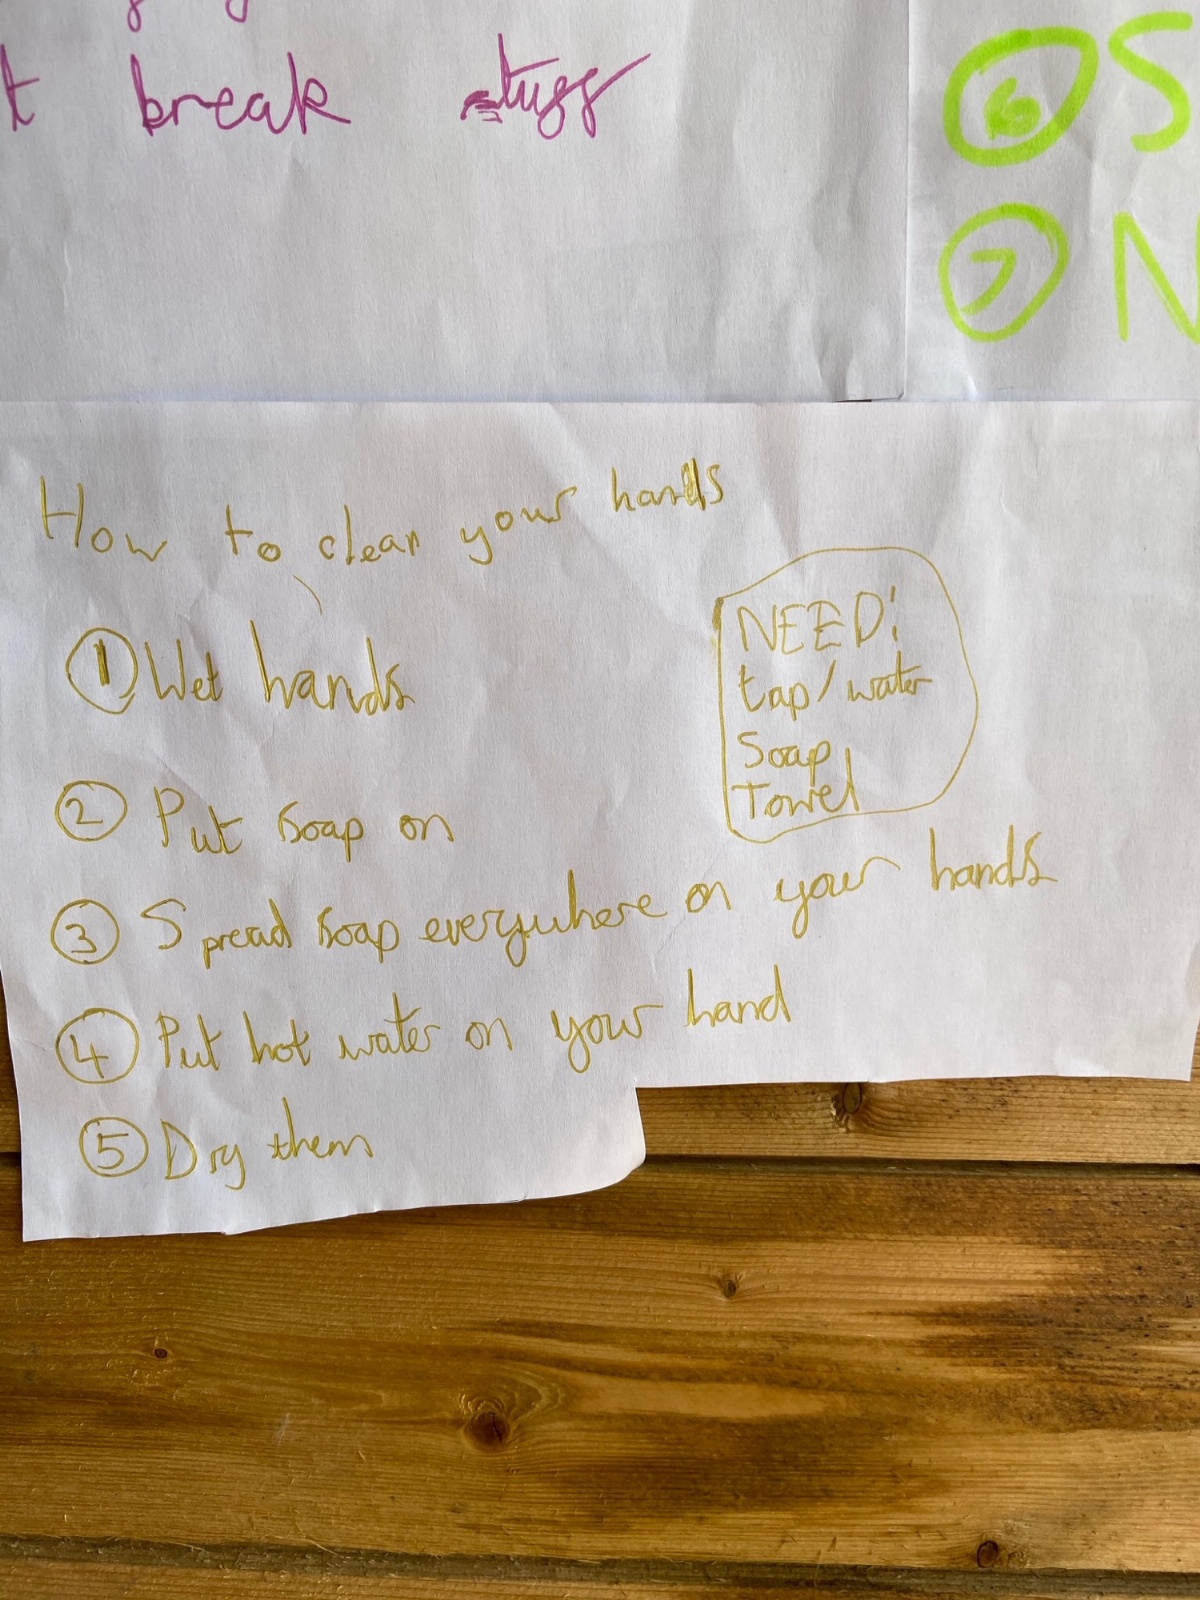 t break stuff
⑥ S
⑦ N
How to clean your hands
① Wet hands
NEED:
tap/water
Soap
Towel
② Put soap on
③ Spread soap everywhere on your hands
④ Put hot water on your hand
⑤ Dry them